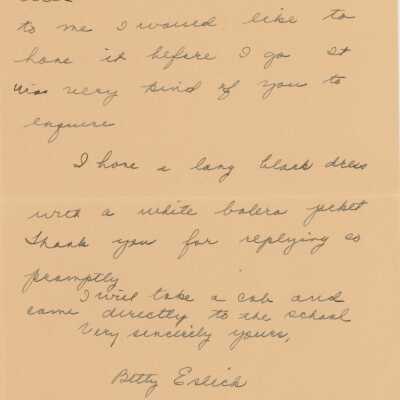 to me I would like to
have it before I go It
was very kind of you to
enquire
I have a long black dress
with a white bolero jacket
Thank you for replying so
promptly
I will take a cab and
come directly to the school
Very sincerely yours,
Betty Eslick